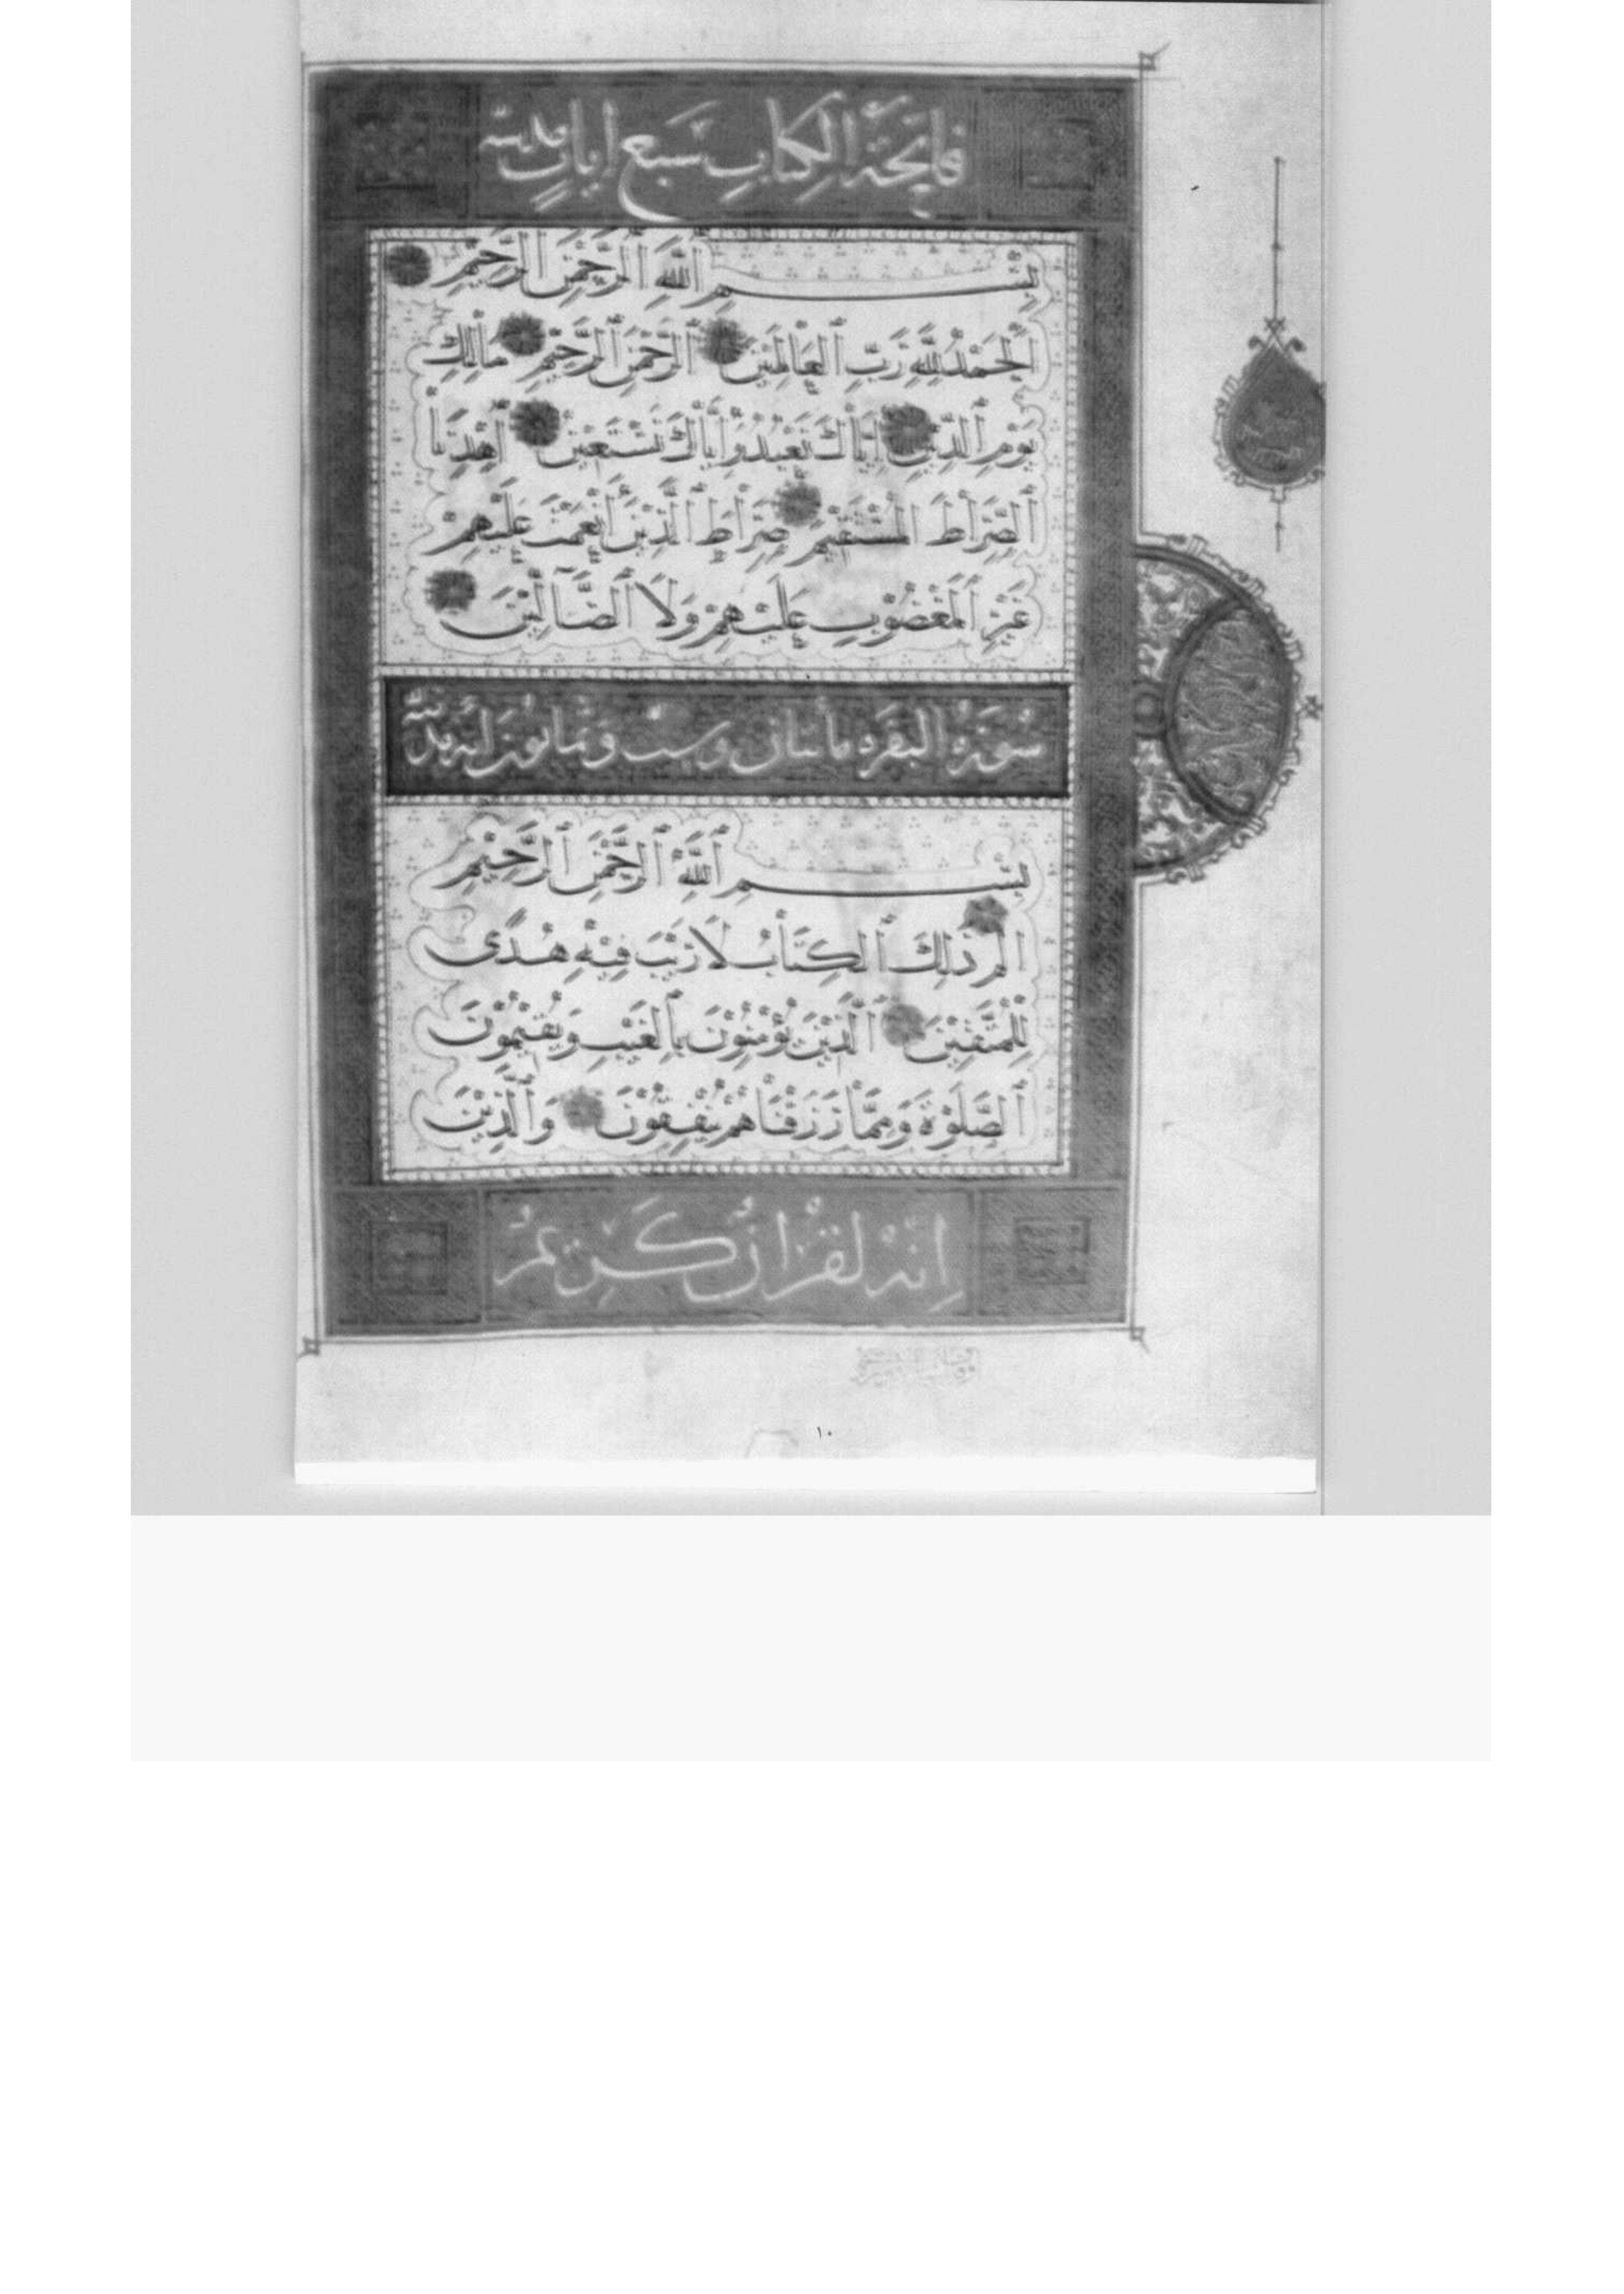 فاتحة الكتاب سبع ايات
بِسْمِ اللَّهِ الرَّحْمَنِ الرَّحِيمِ
اَلْحَمْدُ لِلَّهِ رَبِّ الْعَالَمِيْنَ الرَّحْمَنِ الرَّحِيْمِ مَالِكِ
يَوْمِ الدِّيْنِ اِيَّاكَ نَعْبُدُ وَاِيَّاكَ نَسْتَعِيْنُ اِهْدِنَا
الصِّرَاطَ الْمُسْتَقِيْمَ صِرَاطَ الَّذِيْنَ اَنْعَمْتَ عَلَيْهِمْ
غَيْرِ الْمَغْضُوْبِ عَلَيْهِمْ وَلَا الضَّالِّيْنَ
سورة البقرة مائتان وست وثمانون اية
بِسْمِ اللَّهِ الرَّحْمَنِ الرَّحِيْمِ
الم ذَلِكَ الْكِتَابُ لَا رَيْبَ فِيْهِ هُدًى
لِلْمُتَّقِيْنَ الَّذِيْنَ يُؤْمِنُوْنَ بِالْغَيْبِ وَيُقِيْمُوْنَ
الصَّلَوةَ وَمِمَّا رَزَقْنَاهُمْ يُنْفِقُوْنَ وَالَّذِيْنَ
اِنَّهُ لَقُرْاٰنٌ كَرِيْمٌ
١٠